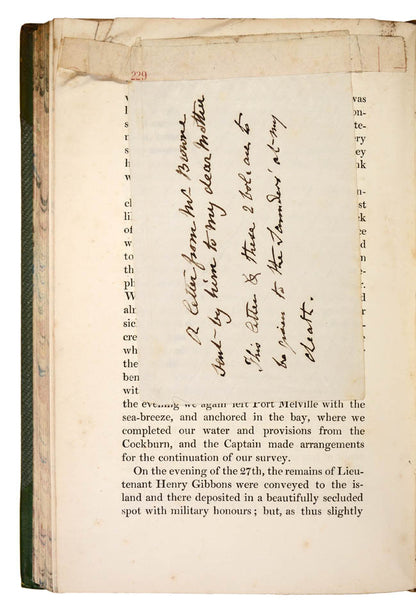 229
A letter from Mr Browne
sent by him to my dear Mother
This letter & these 2 vols are to
be given to the Saunders' at my
death.
the evening we again left Port Melville with the
sea-breeze, and anchored in the bay, where we
completed our water and provisions from the
Cockburn, and the Captain made arrangements
for the continuation of our survey.
On the evening of the 27th, the remains of Lieu-
tenant Henry Gibbons were conveyed to the is-
land and there deposited in a beautifully secluded
spot with military honours; but, as thus slightly